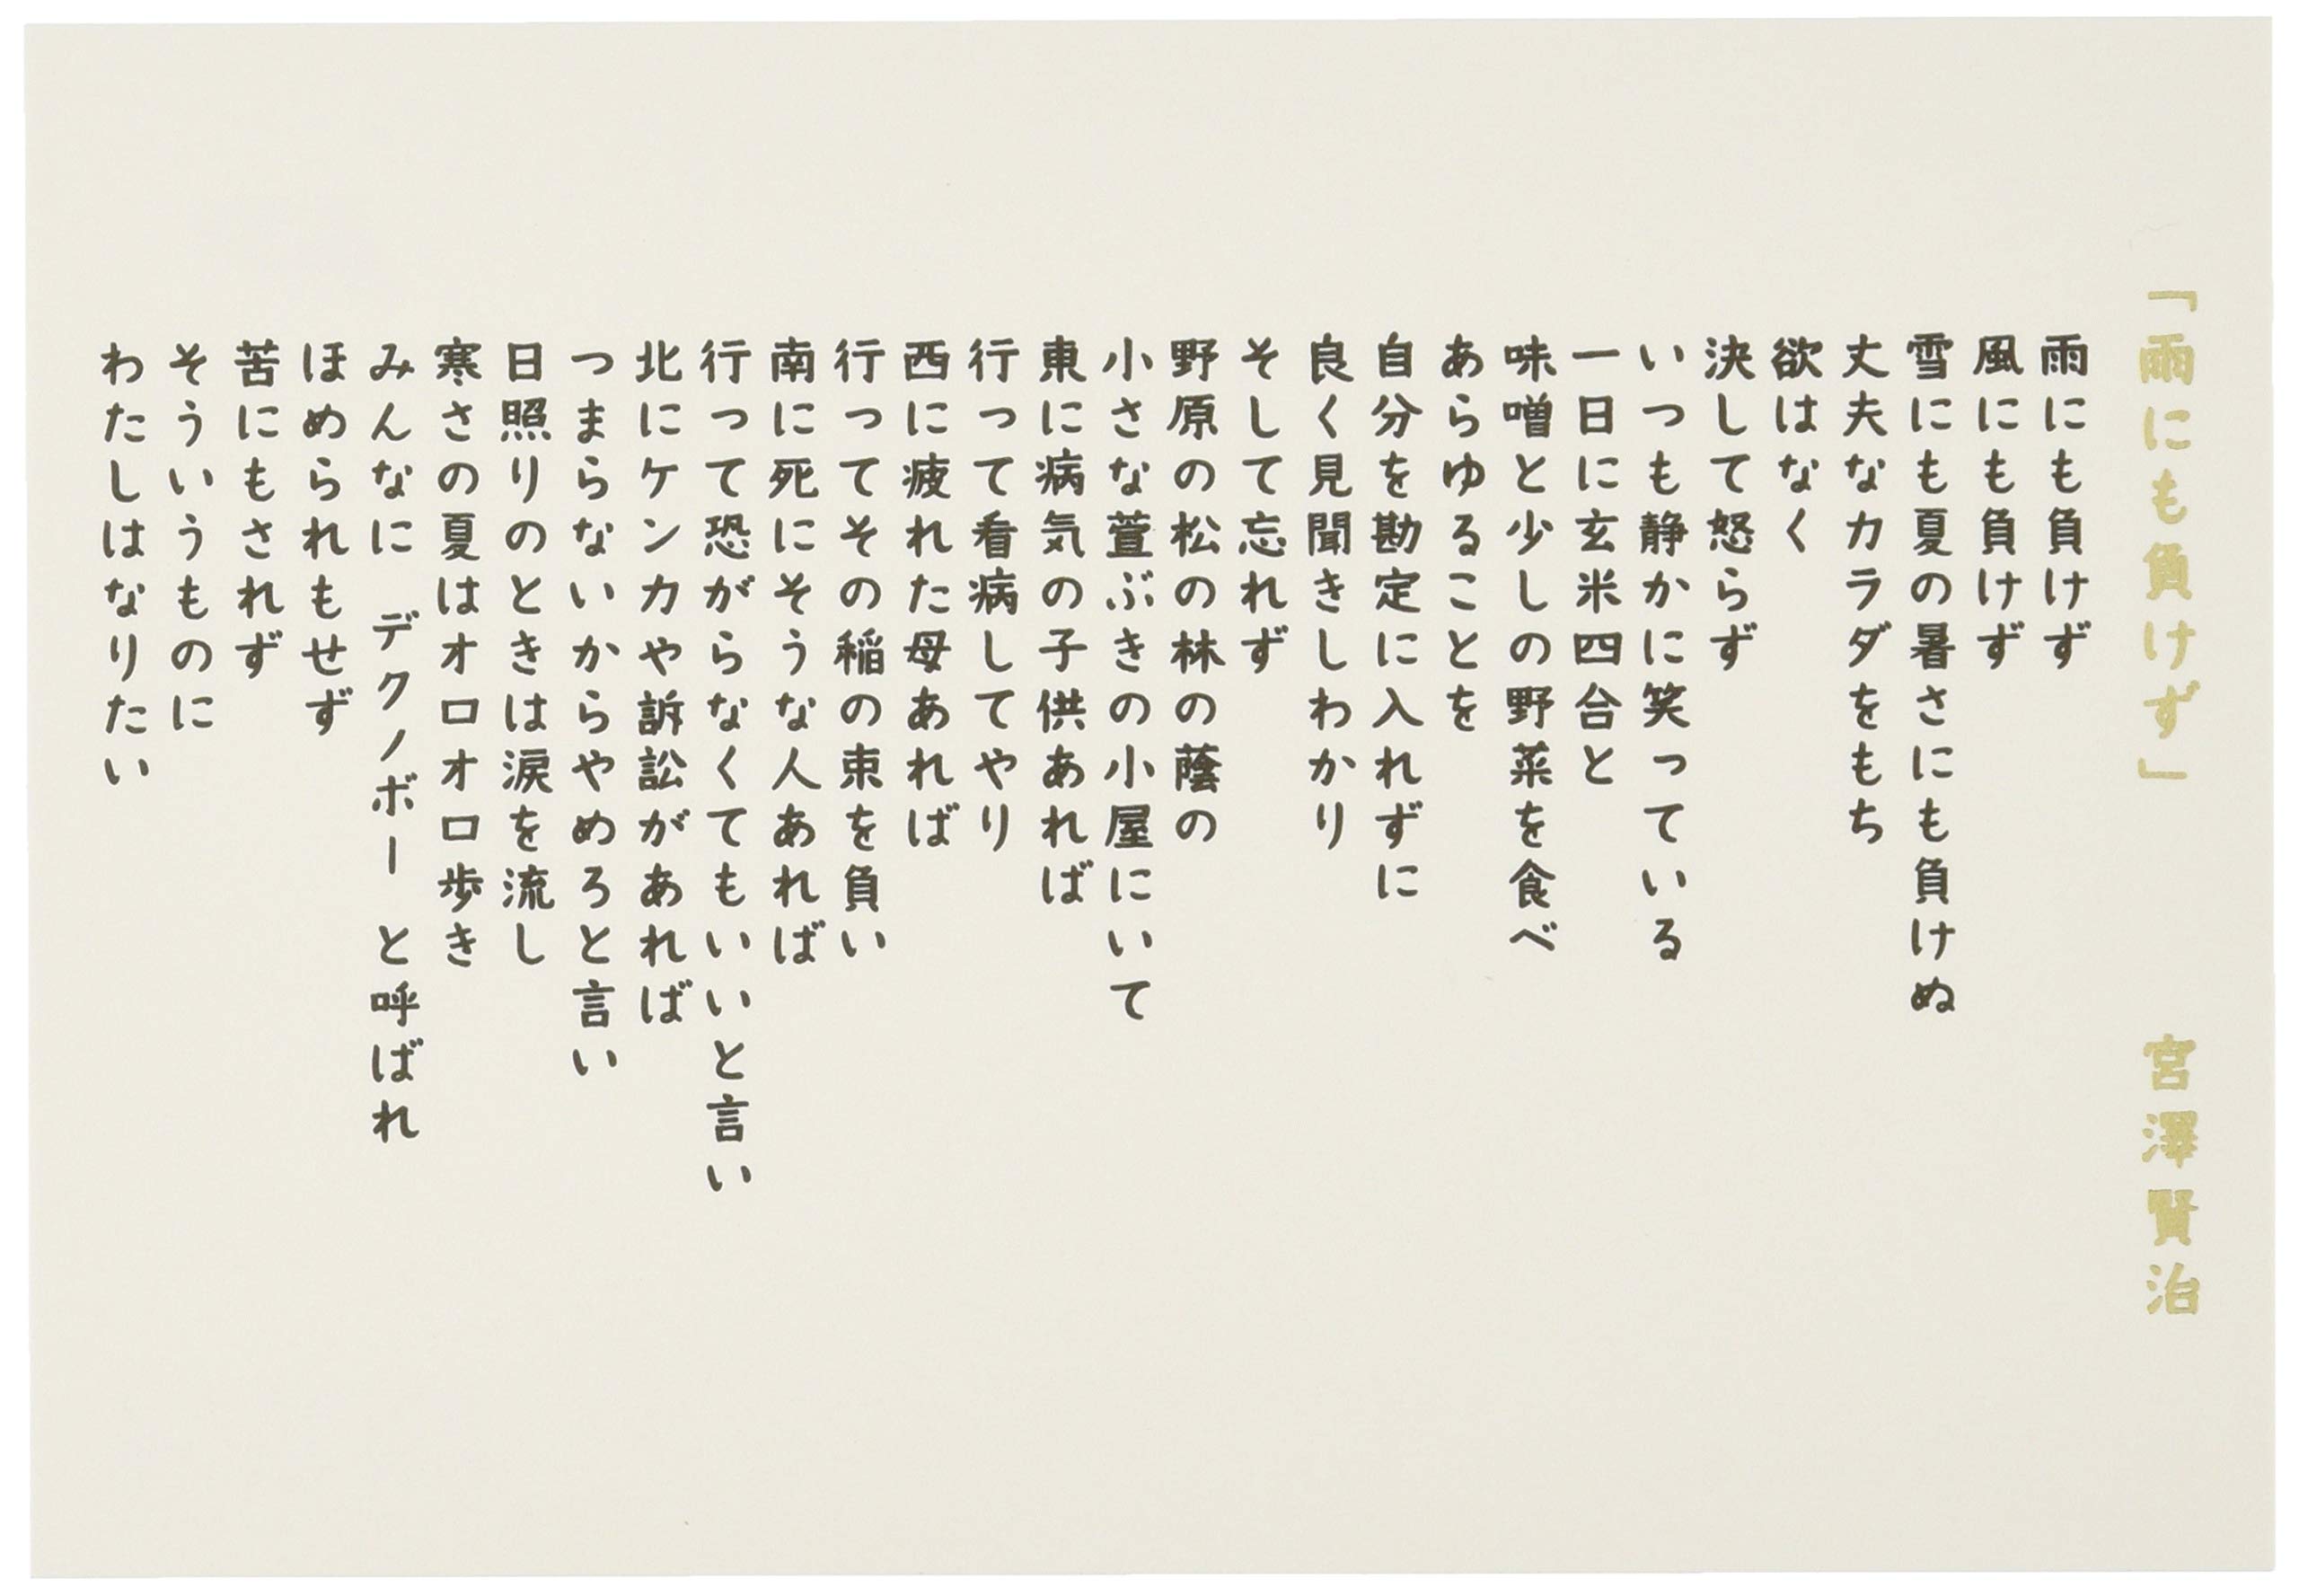 「雨にも負けず」 宮澤賢治
雨にも負けず
風にも負けず
雪にも夏の暑さにも負けぬ
丈夫なカラダをもち
欲はなく
決して怒らず
いつも静かに笑っている
一日に玄米四合と
味噌と少しの野菜を食べ
あらゆることを
自分を勘定に入れずに
良く見聞きしわかり
そして忘れず
野原の松の林の蔭の
小さな萱ぶきの小屋にいて
東に病気の子供あれば
行って看病してやり
西に疲れた母あれば
行ってその稲の束を負い
南に死にそうな人あれば
行って恐がらなくてもいいと言い
北にケンカや訴訟があれば
つまらないからやめろと言い
日照りのときは涙を流し
寒さの夏はオロオロ歩き
みんなに デクノボー と呼ばれ
ほめられもせず
苦にもされず
そういうものに
わたしはなりたい